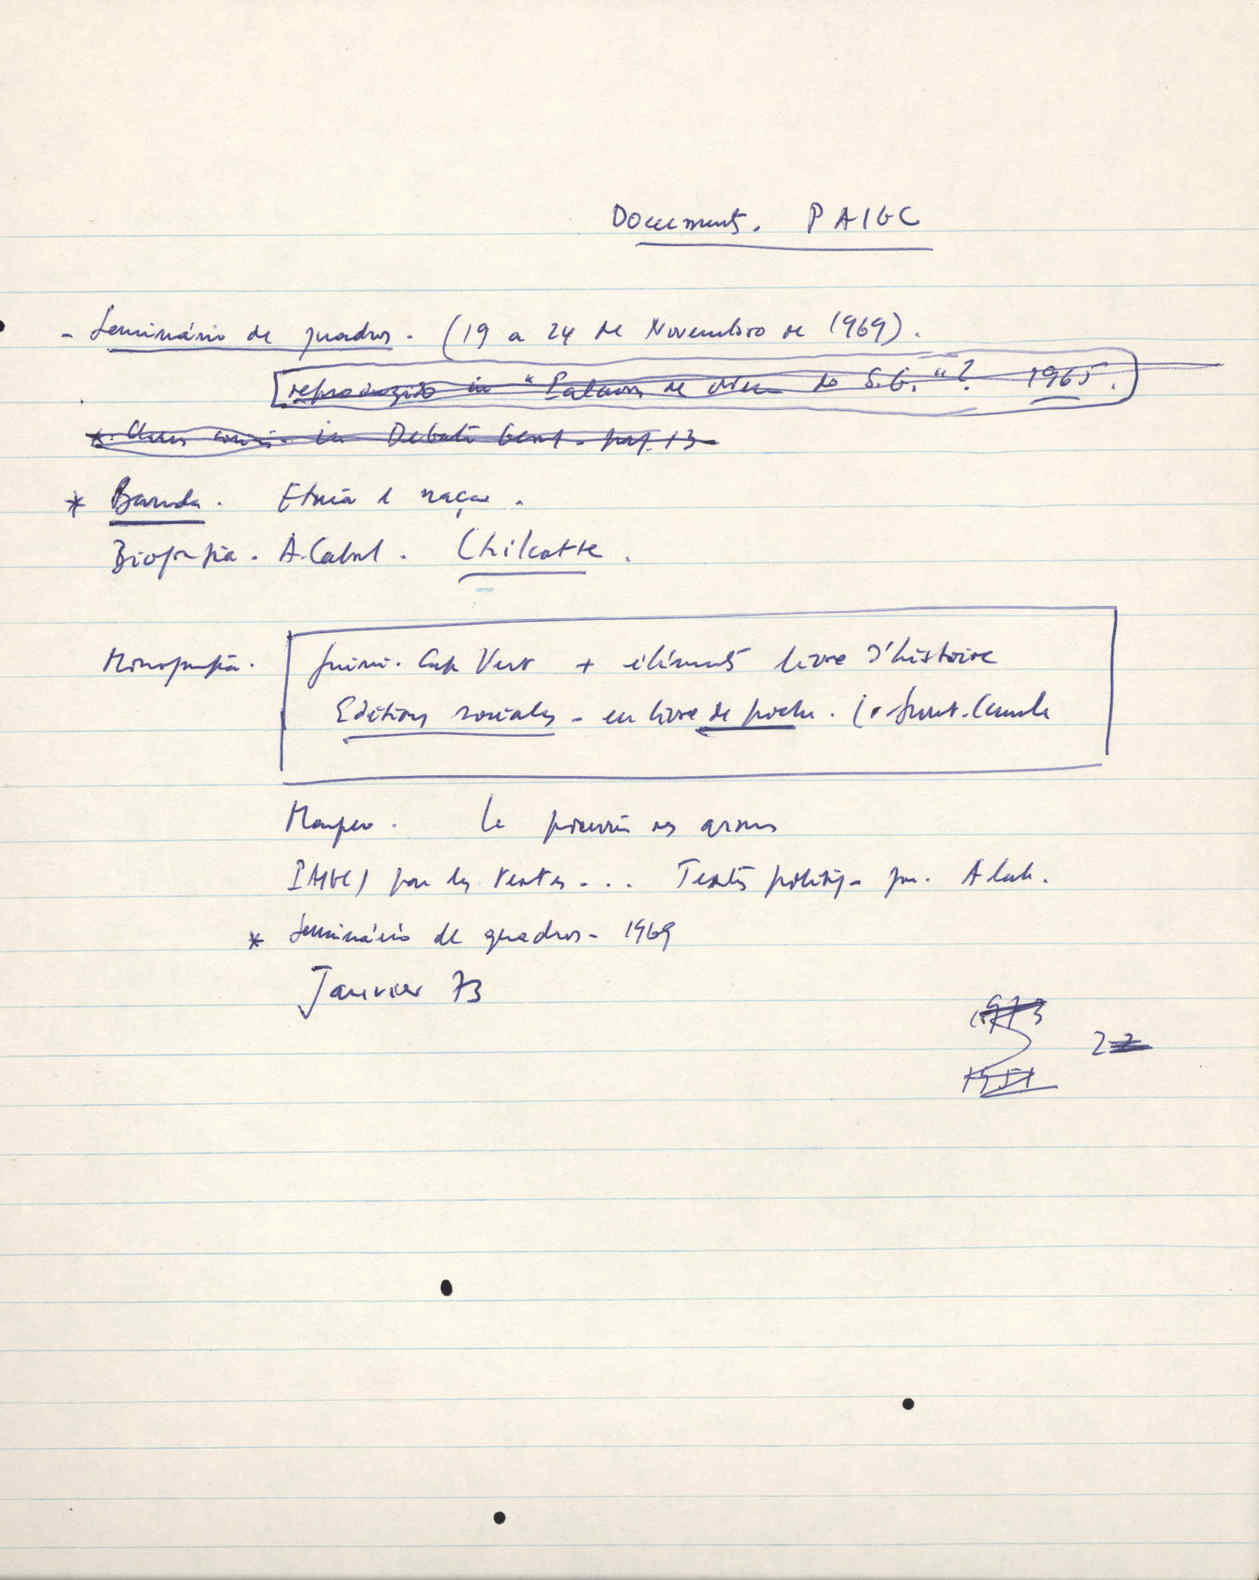 Documents. PAIGC
- Seminário de quadros. (19 a 24 de Novembro de 1969).
reproduzido in "Palavras de do S.G."? 1965.
in Debate Geral - pag. 13
* Banda. Etnia e nação.
Biografia. A. Cabral. Chilcotte.
Monografia. Guiné. Cap Vert + éléments livre d'histoire
Editions sociales - en livre de poche.
Le pouvoir des armes
PAIGC) par les textes... Textes politiq. par. A
* Seminário de quadros - 1969
Janvier 73
1973
22
1951